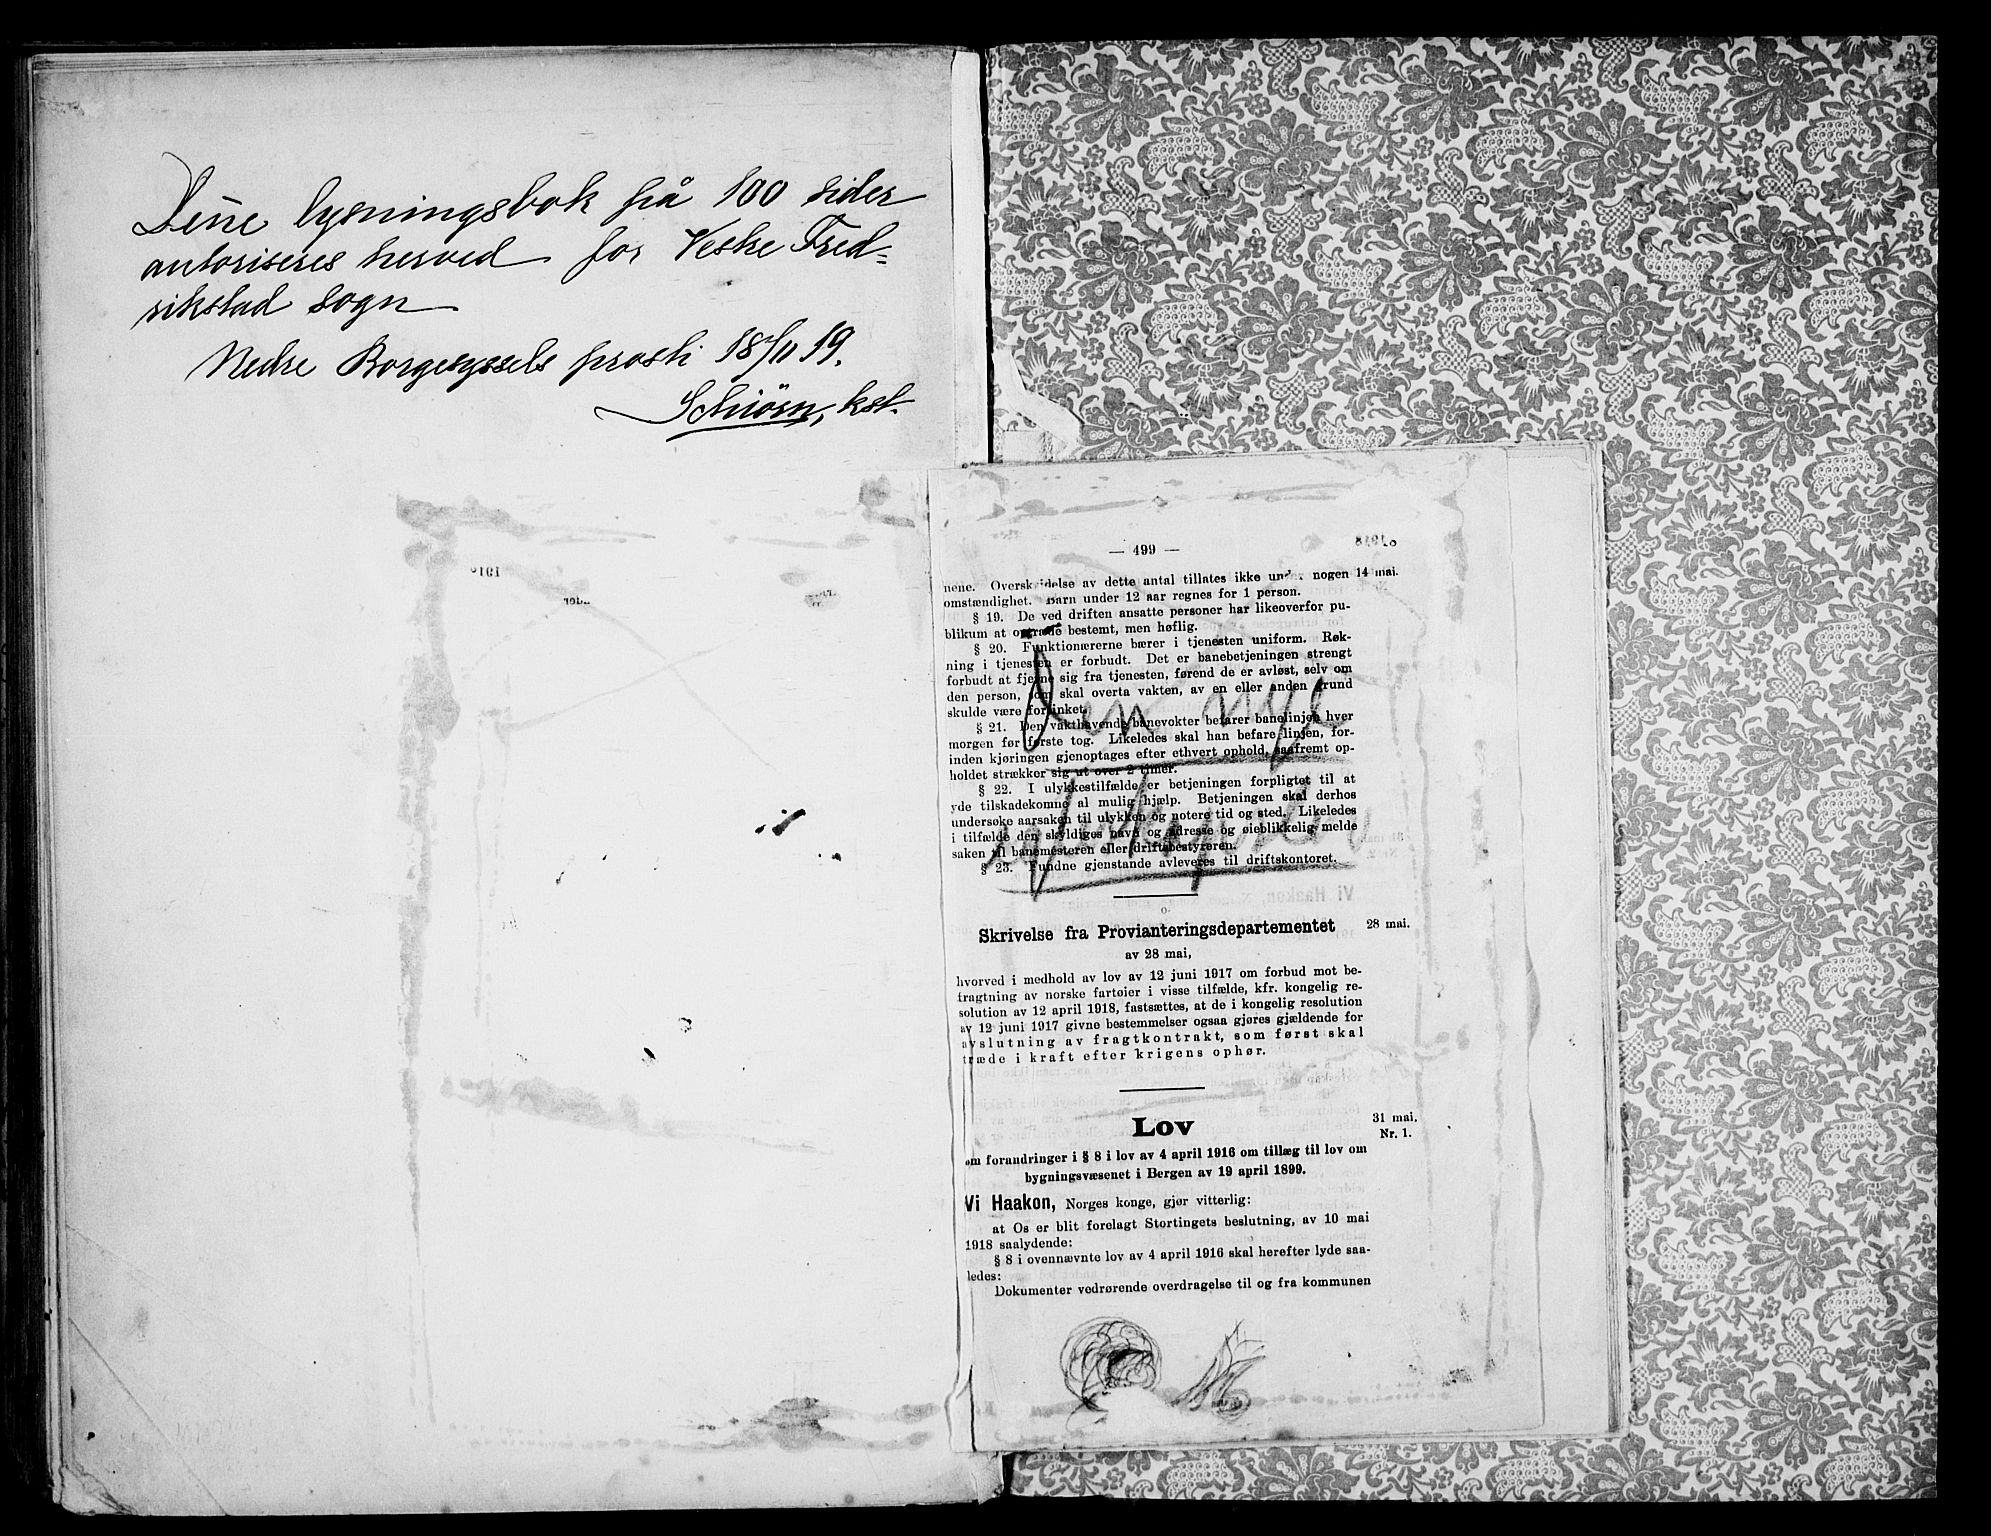 Denne lysningsbok på 100 sider
autoriseres herved for Vestre Fred=
rikstad sogn
Nedre Borgesyssels prosti 18/11 19.
Schiörn, kst.
— 499 —
nene. Overskridelse av dette antal tillates ikke under nogen 14 mai.
omstændighet. Barn under 12 aar regnes for 1 person.
§ 19. De ved driften ansatte personer har likeoverfor pu-
blikum at optræde bestemt, men høflig.
§ 20. Funktionærerne bærer i tjenesten uniform. Røk-
ning i tjenesten er forbudt. Det er banebetjeningen strengt
forbudt at fjerne sig fra tjenesten, førend de er avløst, selv om
den person, som skal overta vakten, av en eller anden grund
skulde være forsinket.
§ 21. Den vakthavende banevokter befarer banelinjen hver
morgen før første tog. Likeledes skal han befare linjen, for-
inden kjøringen gjenoptages efter ethvert ophold, saafremt op-
holdet strækker sig ut over 2 timer.
§ 22. I ulykkestilfælde er betjeningen forpligtet til at
yde tilskadekomne al mulig hjælp. Betjeningen skal derhos
undersøke aarsaken til ulykken og notere tid og sted. Likeledes
i tilfælde den skyldiges navn og adresse og øieblikkelig melde
saken til banemesteren eller driftsbestyreren.
§ 23. Fundne gjenstande avleveres til driftskontoret.
Den nye
Skrivelse fra Provianteringsdepartementet 28 mai.
av 28 mai,
hvorved i medhold av lov av 12 juni 1917 om forbud mot be-
fragtning av norske fartøier i visse tilfælde, kfr. kongelig re-
solution av 12 april 1918, fastsættes, at de i kongelig resolution
av 12 juni 1917 givne bestemmelser ogsaa gjøres gjældende for
avslutning av fragtkontrakt, som først skal
træde i kraft efter krigens ophør.
Lov 31 mai.
Nr. 1.
om forandringer i § 8 i lov av 4 april 1916 om tillæg til lov om
bygningsvæsenet i Bergen av 19 april 1899.
Vi Haakon, Norges konge, gjør vitterlig:
at Os er blit forelagt Stortingets beslutning, av 10 mai
1918 saalydende:
§ 8 i ovennævnte lov av 4 april 1916 skal herefter lyde saa-
ledes:
Dokumenter vedrørende overdragelse til og fra kommunen